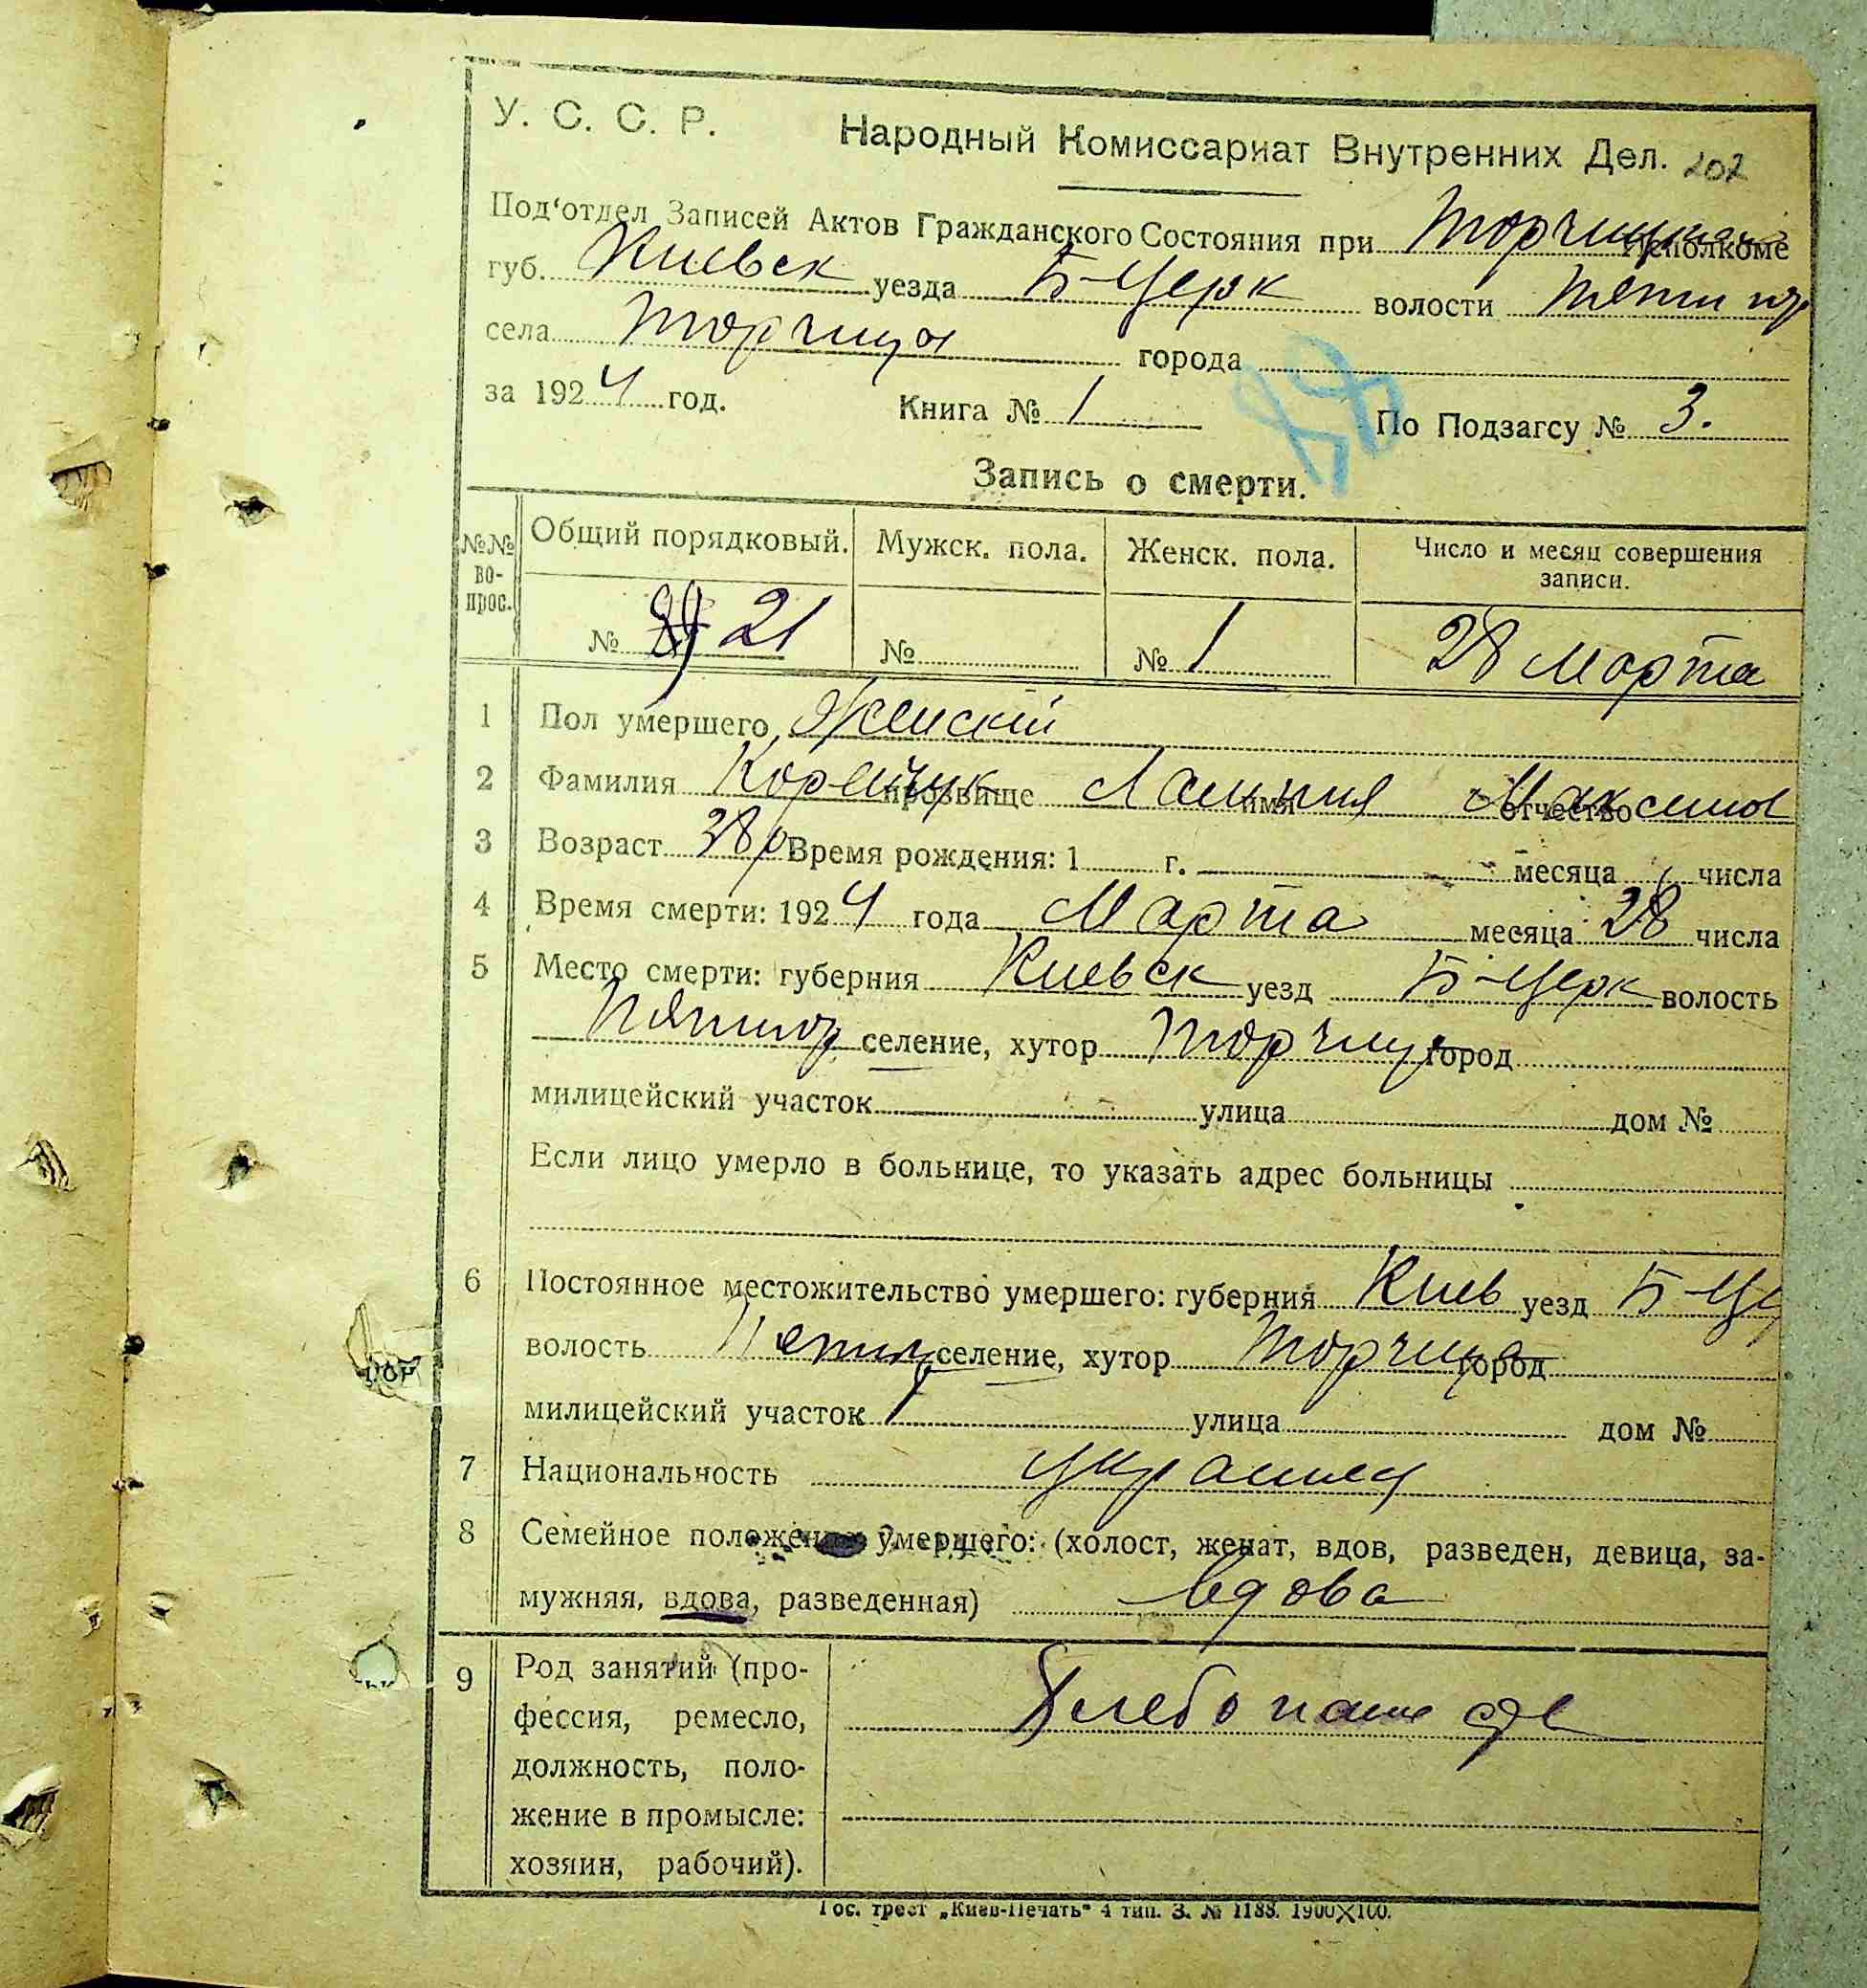 У. С. С. Р.
Народный Комиссариат Внутренних Дел. 207
Под'отдел Записей Актов Гражданского Состояния при Торчицком исполкоме
губ. Киевск уезда Б-Церк волости
села Торчица города
за 1924 год. Книга № 1 По Подзагсу № 3.
Запись о смерти.
№№ во-прос. Общий порядковый. Мужск. пола. Женск. пола. Число и месяц совершения записи.
№ 21 № № 1 28 Марта
1 Пол умершего Женскій
2 Фамилия прозвище имя отчество
3 Возраст 38 Время рождения: 1 г. месяца числа
4 Время смерти: 1924 года Марта месяца 28 числа
5 Место смерти: губерния Киевск уезд Б-Церк волость
селение, хутор Торчиц город
милицейский участок улица дом №
Если лицо умерло в больнице, то указать адрес больницы
6 Постоянное местожительство умершего: губерния Киев уезд Б-Це
волость селение, хутор Торчица город
милицейский участок улица дом №
7 Национальность
8 Семейное положение умершего: (холост, женат, вдов, разведен, девица, за-
мужняя, вдова, разведенная) вдова
9 Род занятий (про-
фессия, ремесло, Хлебопашест
должность, поло-
жение в промысле:
хозяин, рабочий).
Гос. трест „Киев-Печать" 4 тип. З. № 1188. 1900×100.